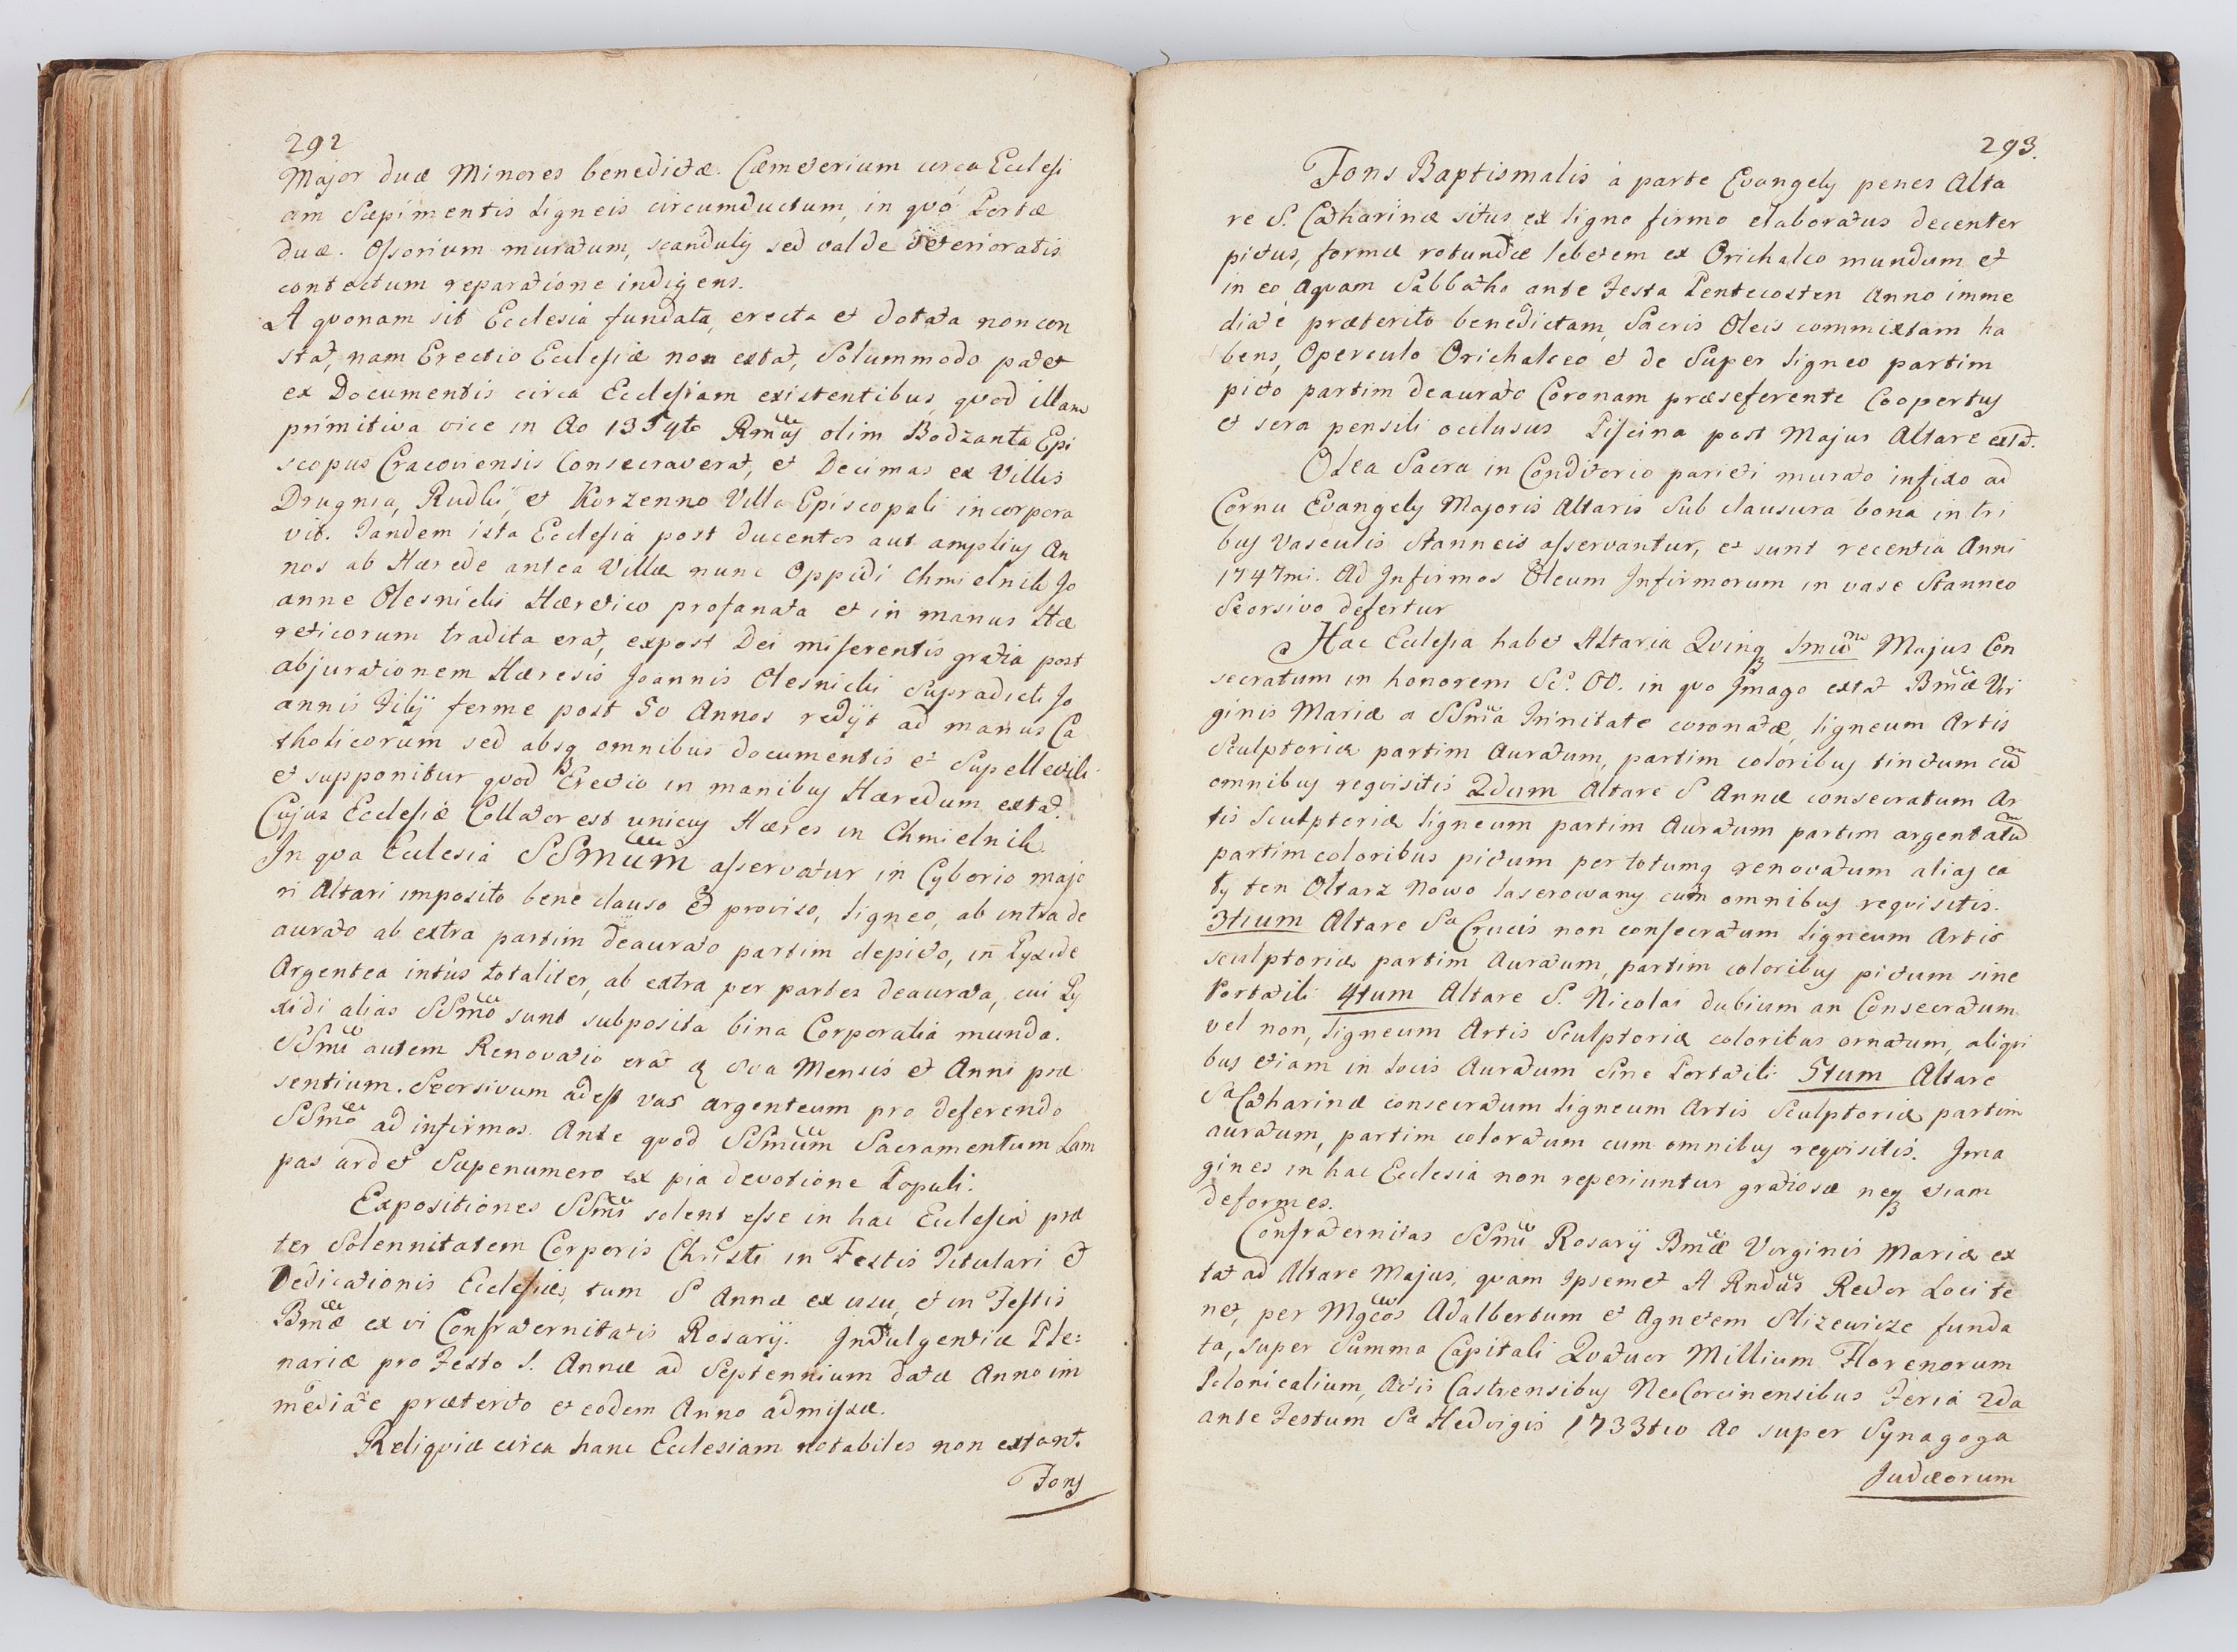 292
Major duæ Minores benedictæ. Cæmeterium circa Ecclesi
am Sæpimentis Ligneis circumductum, in quo Portæ
duæ. Ossorium muratum, scandulis sed valde deterioratis
contectum reparatione indigens.
A quonam sit Ecclesia fundata, erecta et dotata non con
stat, nam Erectio Ecclesiæ non extat, Solummodo patet
ex Documentis circa Ecclesiam existentibus, quod illam
primitiva vice in Ao Rmus olim Bodzanta Epi
scopus Cracoviensis Consecraverat, et Decimas ex Villis
Drugnia, Rudki, et Korzenno Villa Episcopali incorpora
vit. Tandem ista Ecclesia post ducentos aut amplius An
nos ab Hærede antea Villæ nunc Oppidi Chmielnik Jo
anne Olesnicki Hæretico profanata et in manus Hæ
reticorum tradita erat, expost Dei miserentis gratia post
abjurationem Hæresis Joannis Olesnicki Supradicti Jo
annis Filij ferme post 50 Annos redijt ad manus Ca
tholicorum sed absq omnibus documentis et Supellectili
et supponitur quod Erectio in manibus Hæredum extat.
Cujus Ecclesiæ Collator est unicus Hæres in Chmielnik.
In qua Ecclesia SSmum asservatur in Cyborio majo
ri Altari imposito bene clauso et proviso, ligneo, ab intra de
aurato ab extra partim deaurato partim depicto, in Pyxide
Argentea intus totaliter, ab extra per partes deaurata, cui Py
xidi alias SSmo sunt subposita bina Corporalia munda.
SSmi autem Renovatio erat Mensis et Anni præ
sentium. Seorsivum adest vas argenteum pro deferendo
SSmo ad infirmos. Ante quod SSmum Sacramentum Lam
pas ardet Sæpenumero ex pia devotione Populi.
Expositiones SSmi solent esse in hac Ecclesia præ
ter Solennitatem Corporis Christi in Festis Titulari et
Dedicationis Ecclesiæ, tum S Annæ ex usu, et in Festis
Bmæ ex vi Confraternitatis Rosarij. Indulgentiæ Ple:
nariæ pro Festo S. Annæ ad Septennium datæ Anno im
mediate præterito et eodem Anno admissæ.
Reliquiæ circa hanc Ecclesiam notabiles non extant.
Fons
293.
Fons Baptismalis à parte Evangelij penes Alta
re S. Catharinæ situs ex ligno firmo elaboratus decenter
pictus, formæ rotundæ lebetem ex Orichalco mundum et
in eo Aquam Sabbatho ante Festa Pentecosten Anno imme
diate præterito benedictam, Sacris Oleis commixtam ha
bens, Operculo Orichalceo et de Super ligneo partim
picto partim deaurato Coronam præseferente Coopertus
et sera pensili occlusus Piscina post Majus Altare extat.
Olea Sacra in Conditorio parieti murato infixo ad
Cornu Evangelij Majoris Altaris Sub clausura bona in tri
bus Vasculis Stanneis asservantur, et sunt recentia Anni
1747mi. Ad Infirmos Oleum Infirmorum in vase Stanneo
Seorsivo defertur
Hæc Ecclesia habet Altaria Quinq 1mum Majus Con
secratum in honorem OO. in quo Imago extat Bmæ Vir
ginis Mariæ a SSma Trinitate coronatæ, ligneum Artis
Sculptoriæ partim Auratum, partim coloribus tinctum cum
omnibus requisitis 2dum Altare S Annæ consecratum Ar
tis Sculptoriæ ligneum partim Auratum partim argentatum
partim coloribus pictum per totumq renovatum alias ca
ły ten Ołtarz Nowo laserowany cum omnibus requisitis.
3tium Altare Sæ Crucis non consecratum Ligneum Artis
sculptoriæ partim Auratum, partim coloribus pictum sine
Portatili 4tum Altare S. Nicolai dubium an Consecratum
vel non, Ligneum Artis Sculptoriæ coloribus ornatum, aliqui
bus etiam in Locis Auratum Sine Portatili 5tum Altare
Sæ Catharinæ consecratum Ligneum Artis Sculptoriæ partim
auratum, partim coloratum cum omnibus requisitis. Ima
gines in hac Ecclesia non reperiuntur gratiosæ neq etiam
deformes.
Confraternitas SSmi Rosarij Bmæ Virginis Mariæ ex
tat ad Altare Majus, quam Ipsemet A Rndus Rector Loci te
net, per Mgcos Adalbertum et Agnetem funda
ta, super Summa Capitali Quatuor Millium Florenorum
Polonicalium, Actis Castrensibus NeoCorcinensibus Feria 2da
ante Festum Sæ Hedvigis 1733tio Ao super Synagoga
Judæorum